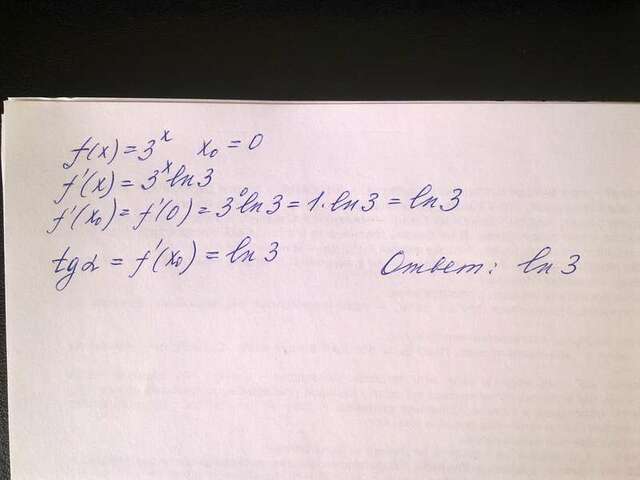 f(x) = 3^x x₀ = 0
f'(x) = 3^x ln 3
f'(x₀) = f'(0) = 3⁰ ln 3 = 1 · ln 3 = ln 3
tg α = f'(x₀) = ln 3 Ответ: ln 3